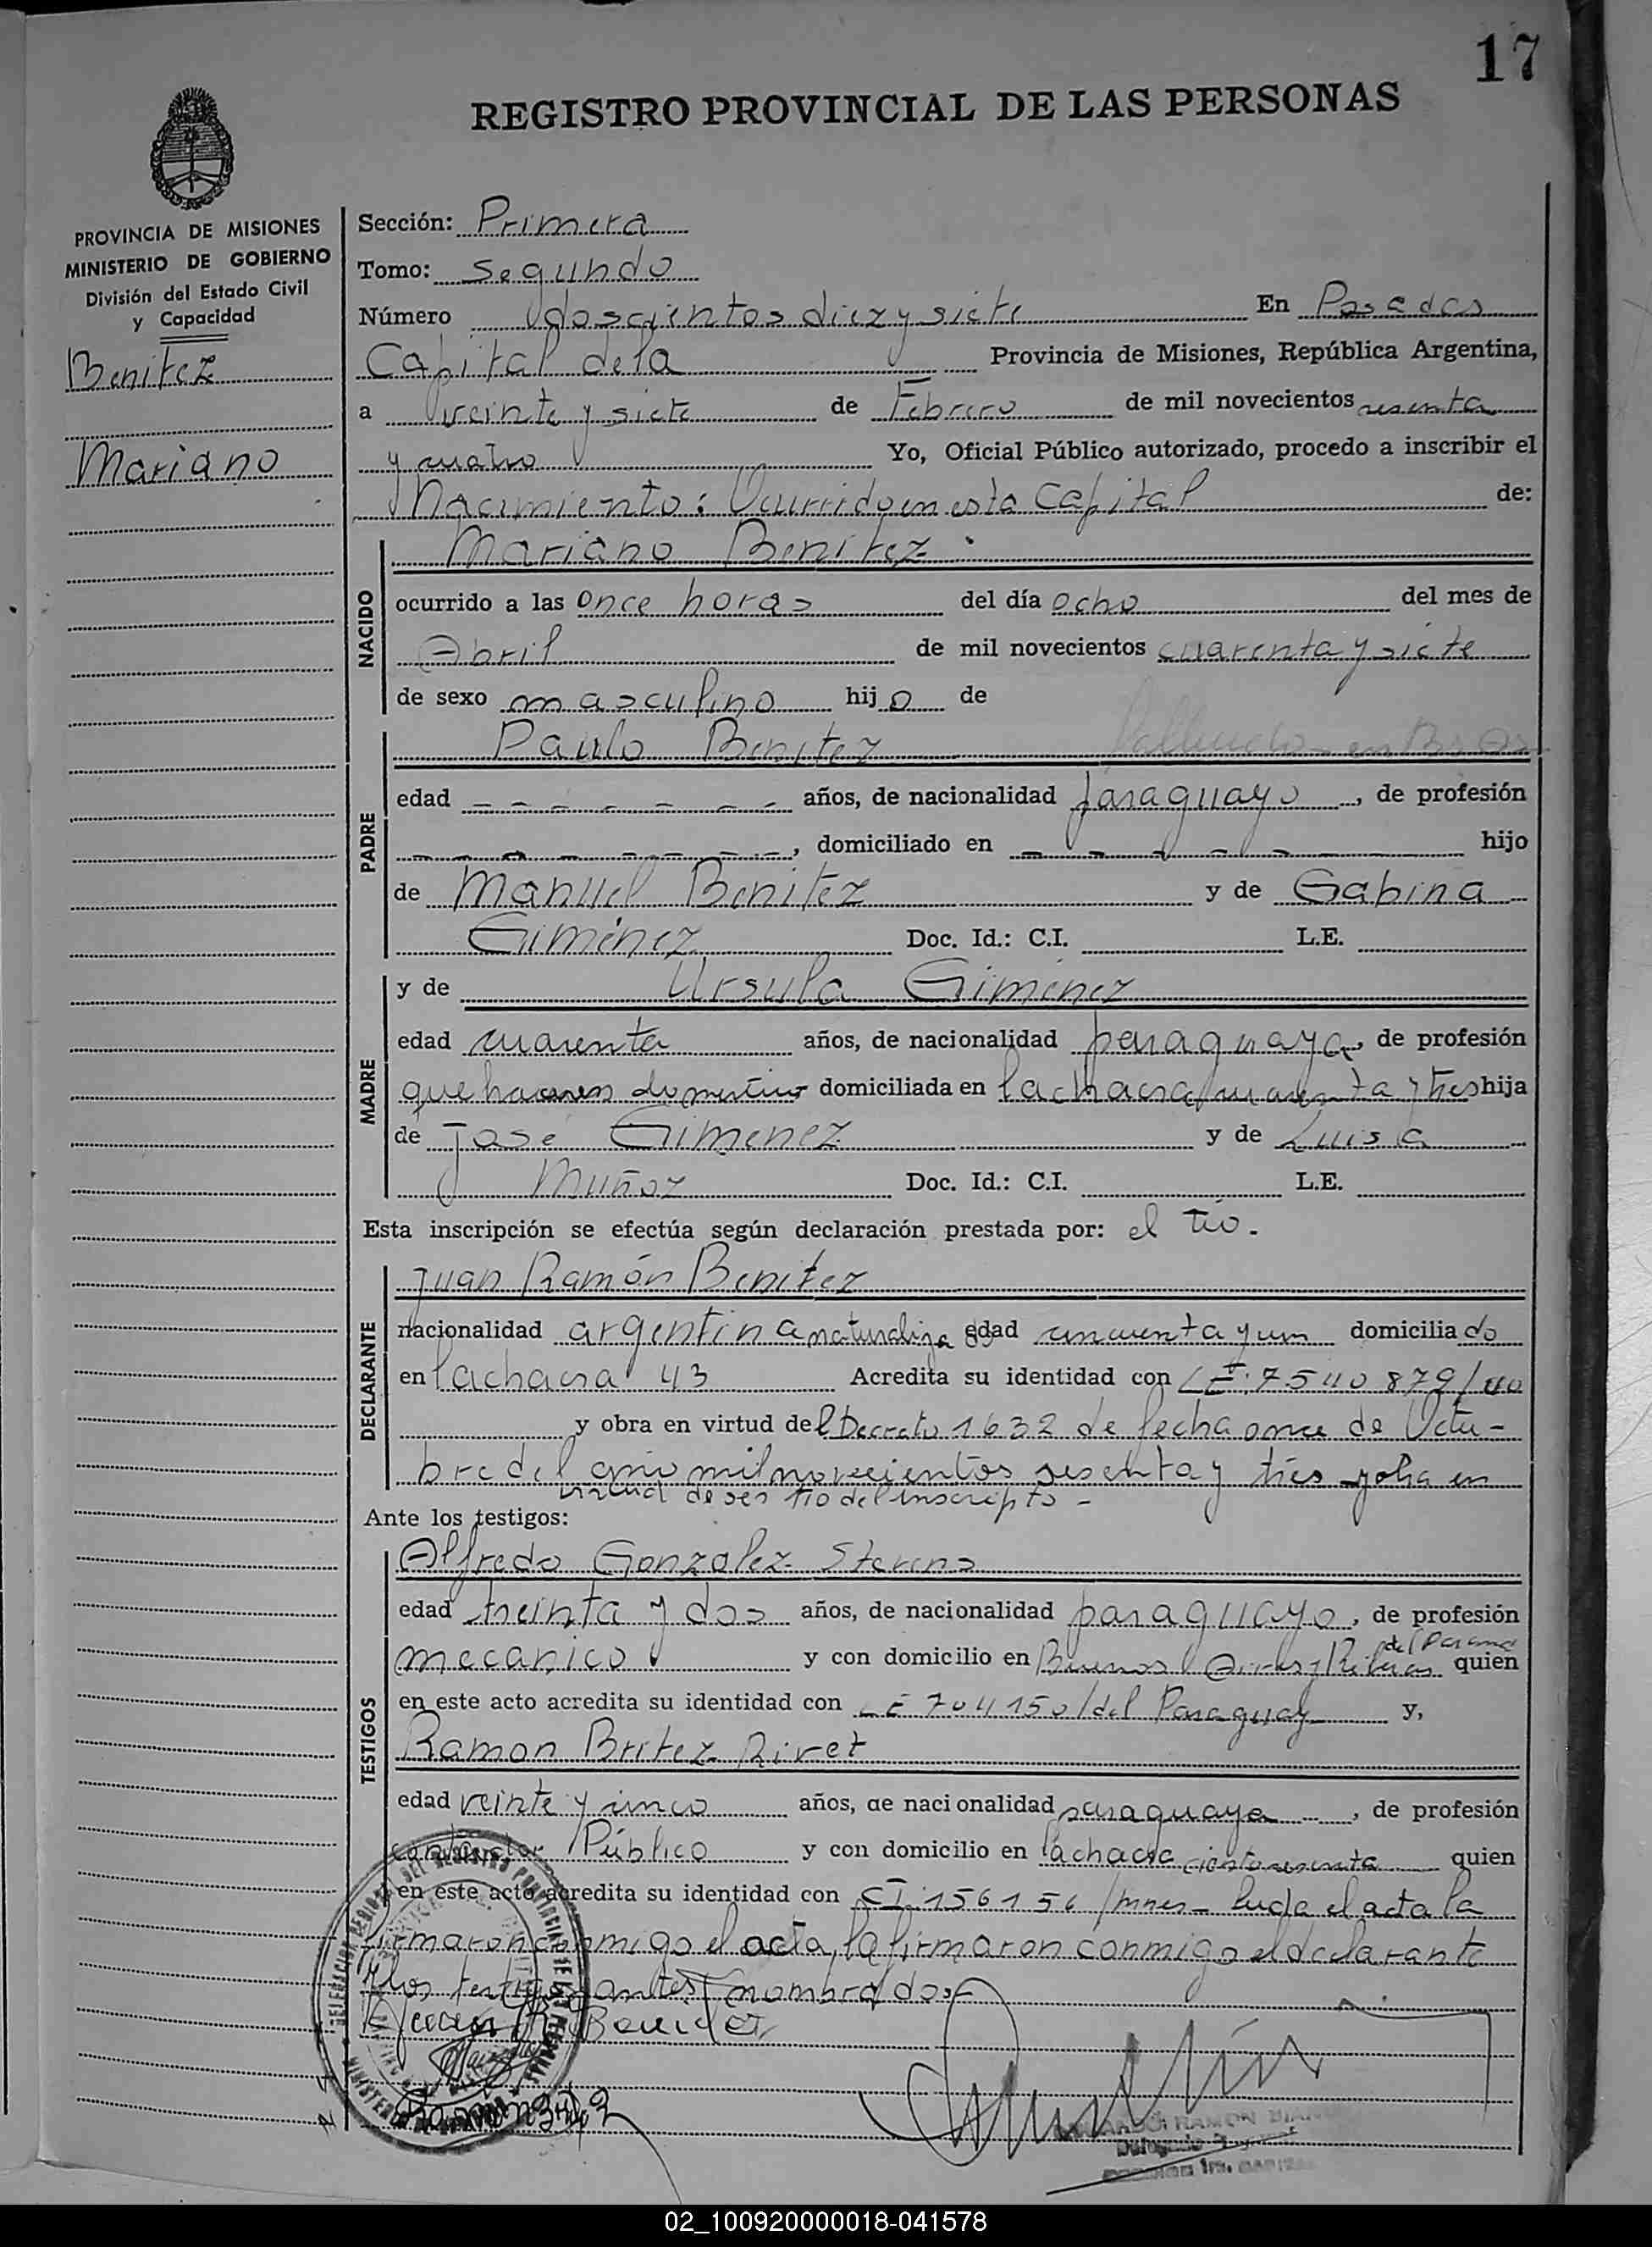 17
REGISTRO PROVINCIAL DE LAS PERSONAS
PROVINCIA DE MISIONES
MINISTERIO DE GOBIERNO
División del Estado Civil
y Capacidad
Benitez
Mariano
Sección: Primera
Tomo: Segundo
Número doscientos diez y siete En Posadas
Capital de la Provincia de Misiones, República Argentina,
a veinte y siete de Febrero de mil novecientos sesenta
y cuatro Yo, Oficial Público autorizado, procedo a inscribir el
Nacimiento: Ocurrido en esta Capital de:
NACIDO
Mariano Benitez.
ocurrido a las once horas del día ocho del mes de
Abril de mil novecientos cuarenta y siete
de sexo masculino hijo de
PADRE
Paulo Benitez
edad — — — — — — años, de nacionalidad paraguayo, de profesión
— — — — — — —, domiciliado en — — — — — — hijo
de Manuel Benitez y de Gabina
Gimenez Doc. Id.: C.I. L.E.
MADRE
y de Ursula Gimenez
edad cuarenta años, de nacionalidad paraguaya, de profesión
quehaceres domestico domiciliada en la chacra cuarenta y tres hija
de José Gimenez y de Luisa
Muñoz Doc. Id.: C.I. L.E.
Esta inscripción se efectúa según declaración prestada por: el tio.
DECLARANTE
Juan Ramón Benitez
nacionalidad argentina naturaliza edad cincuenta y un domiciliado
en la chacra 43 Acredita su identidad con LE. 7540879/40
y obra en virtud del Decreto 1632 de fecha once de Octu-
bre del año mil novecientos sesenta y tres y obra en
virtud de ser tio del inscripto -
Ante los testigos:
TESTIGOS
Alfredo Gonzalez Stevens
edad treinta y dos años, de nacionalidad paraguayo, de profesión
mecanico y con domicilio en Buenos Aires y Riberas del Parana quien
en este acto acredita su identidad con LE 704150/del Paraguay y,
Ramon Britez Rivet
edad veinte y cinco años, de nacionalidad paraguaya, de profesión
Contador Público y con domicilio en la chacra ciento sesenta quien
en este acto acredita su identidad con CI. 156156/Mnes- Leida el acta la
firmaron conmigo el acta, la firmaron conmigo el declarante
y los testigos antes nombrados
Juan R Benitez
RAMON
Delegado
02_100920000018-041578